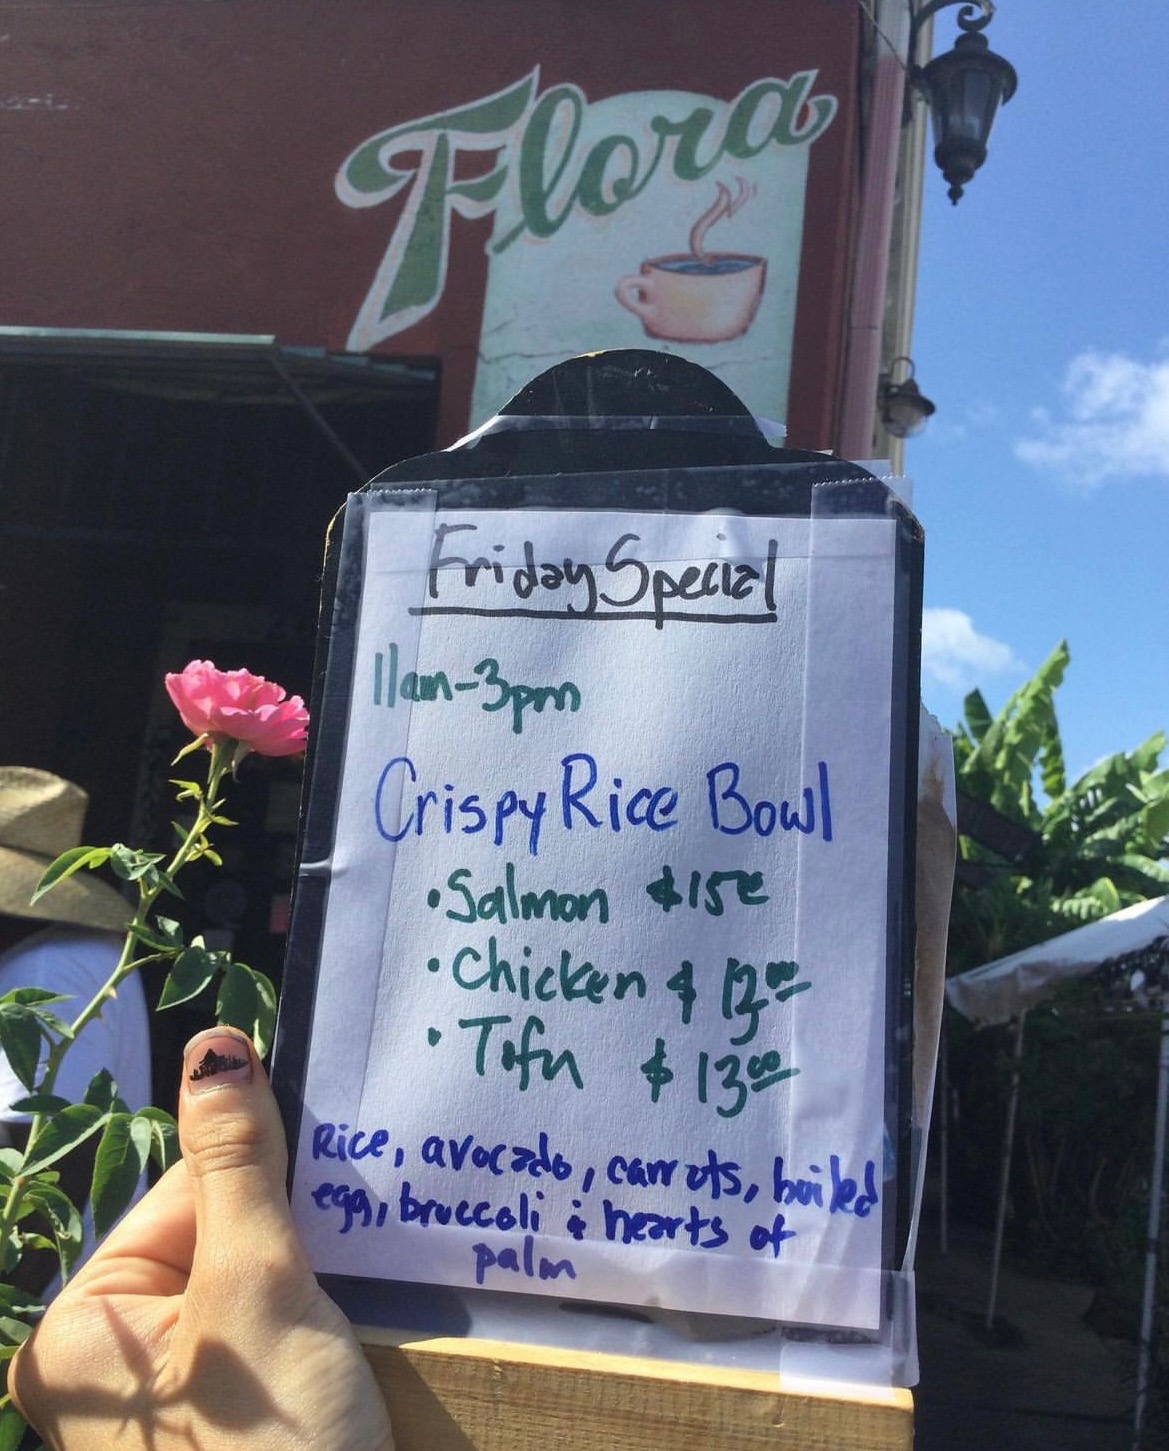 Flora
Friday Special
11am-3pm
Crispy Rice Bowl
• Salmon $15
• Chicken $ 13.00
• Tofu $ 13.00
Rice, avocado, carrots, boiled
egg, broccoli & hearts of
palm